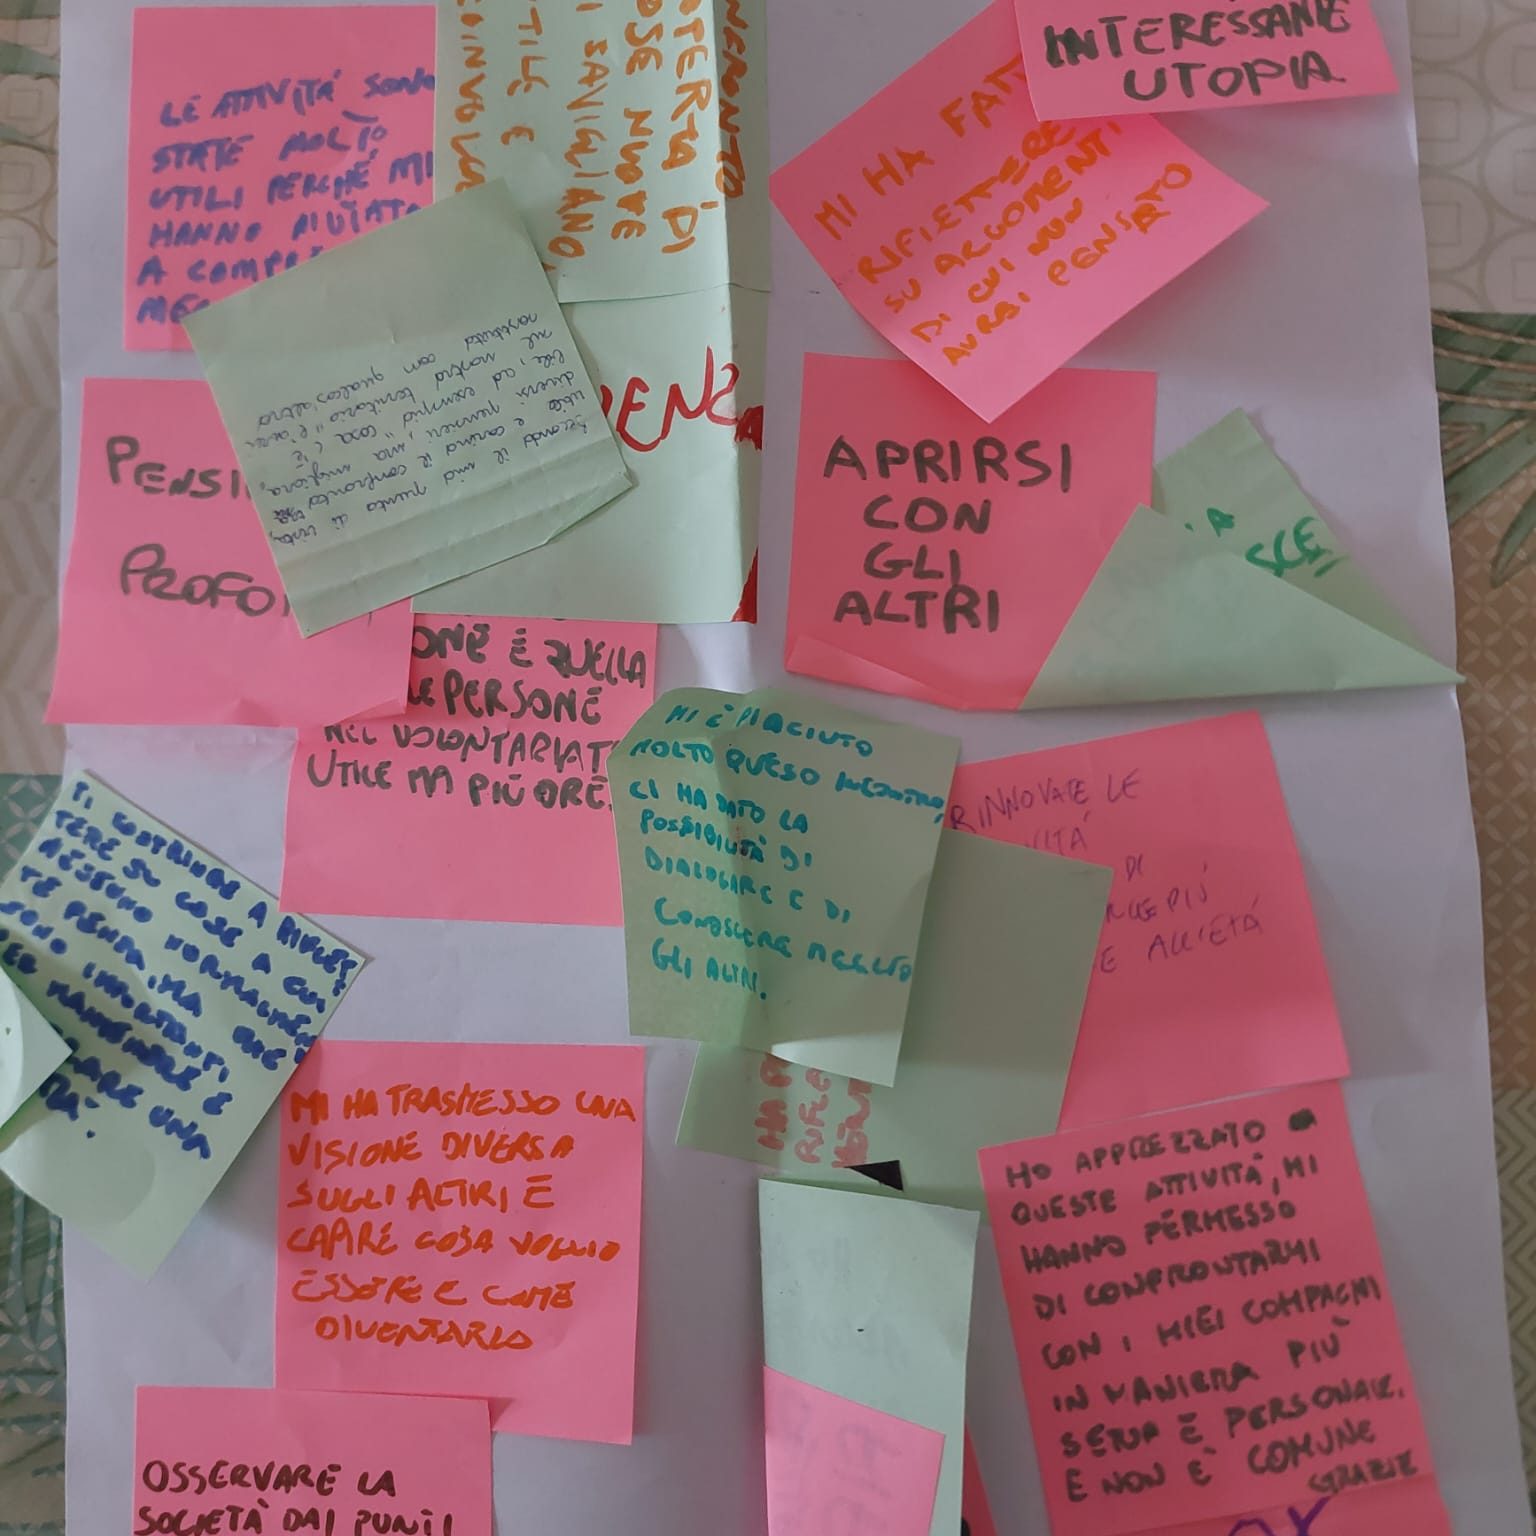 LE ATTIVITÁ SONO
STATE MOLTO
UTILI PERCHÉ MI
HANNO AIUTATO
A COMPR
ME
CONFRONTO
SCOPERTA DI
COSE NUOVE
DI SAVIGLIANO,
UTILE E
COINVOLGE
INTERESSANTE
UTOPIA
MI HA FATT
RIFLETTERE
SU ARGOMENTI
DI CUI NON
AVREI PENSATO
Secondo il mio punto di vista,
utile e carino il confronto tra
diversi pensieri, ma migliora
bile, ad esempio "cosa c'è
sul nostro territorio" l'avrei
sostituito con qualcos'altro
ENZA
PENSI
PROFO
APRIRSI
CON
GLI
ALTRI
'A
SCE
ONE È QUELLA
LE PERSONE
NEL VOLONTARIAT
UTILE MA PIÙ ORE.
MI È PIACIUTO
MOLTO QUESO INCONTRO,
CI HA DATO LA
POSSIBILITÀ DI
DIALOGARE E DI
CONOSCERE MEGLIO
GLI ALTRI.
RINNOVATE LE
VITÁ
DI
RLE PIÙ
E ALL'ETÁ
TI COSTRINGE A RIFLET
TERE SU COSE A CUI
NESSUNO NORMALMEN
TE PENSA, MA CHE
SONO IMPORTANTI
PER MANDARE E
ARE UNA
TÀ.
MI HA TRASMESSO UNA
VISIONE DIVERSA
SUGLI ALTRI E
CAPIRE COSA VOGLIO
ESSERE E COME
DIVENTARLO
HA P
RIFLE
HO APPREZZATO
QUESTE ATTIVITÀ, MI
HANNO PERMESSO
DI CONFRONTARMI
CON I MIEI COMPAGNI
IN MANIERA PIÙ
SERIA E PERSONALE.
E NON È COMUNE
GRAZIE
OSSERVARE LA
SOCIETÀ DAI PUNTI